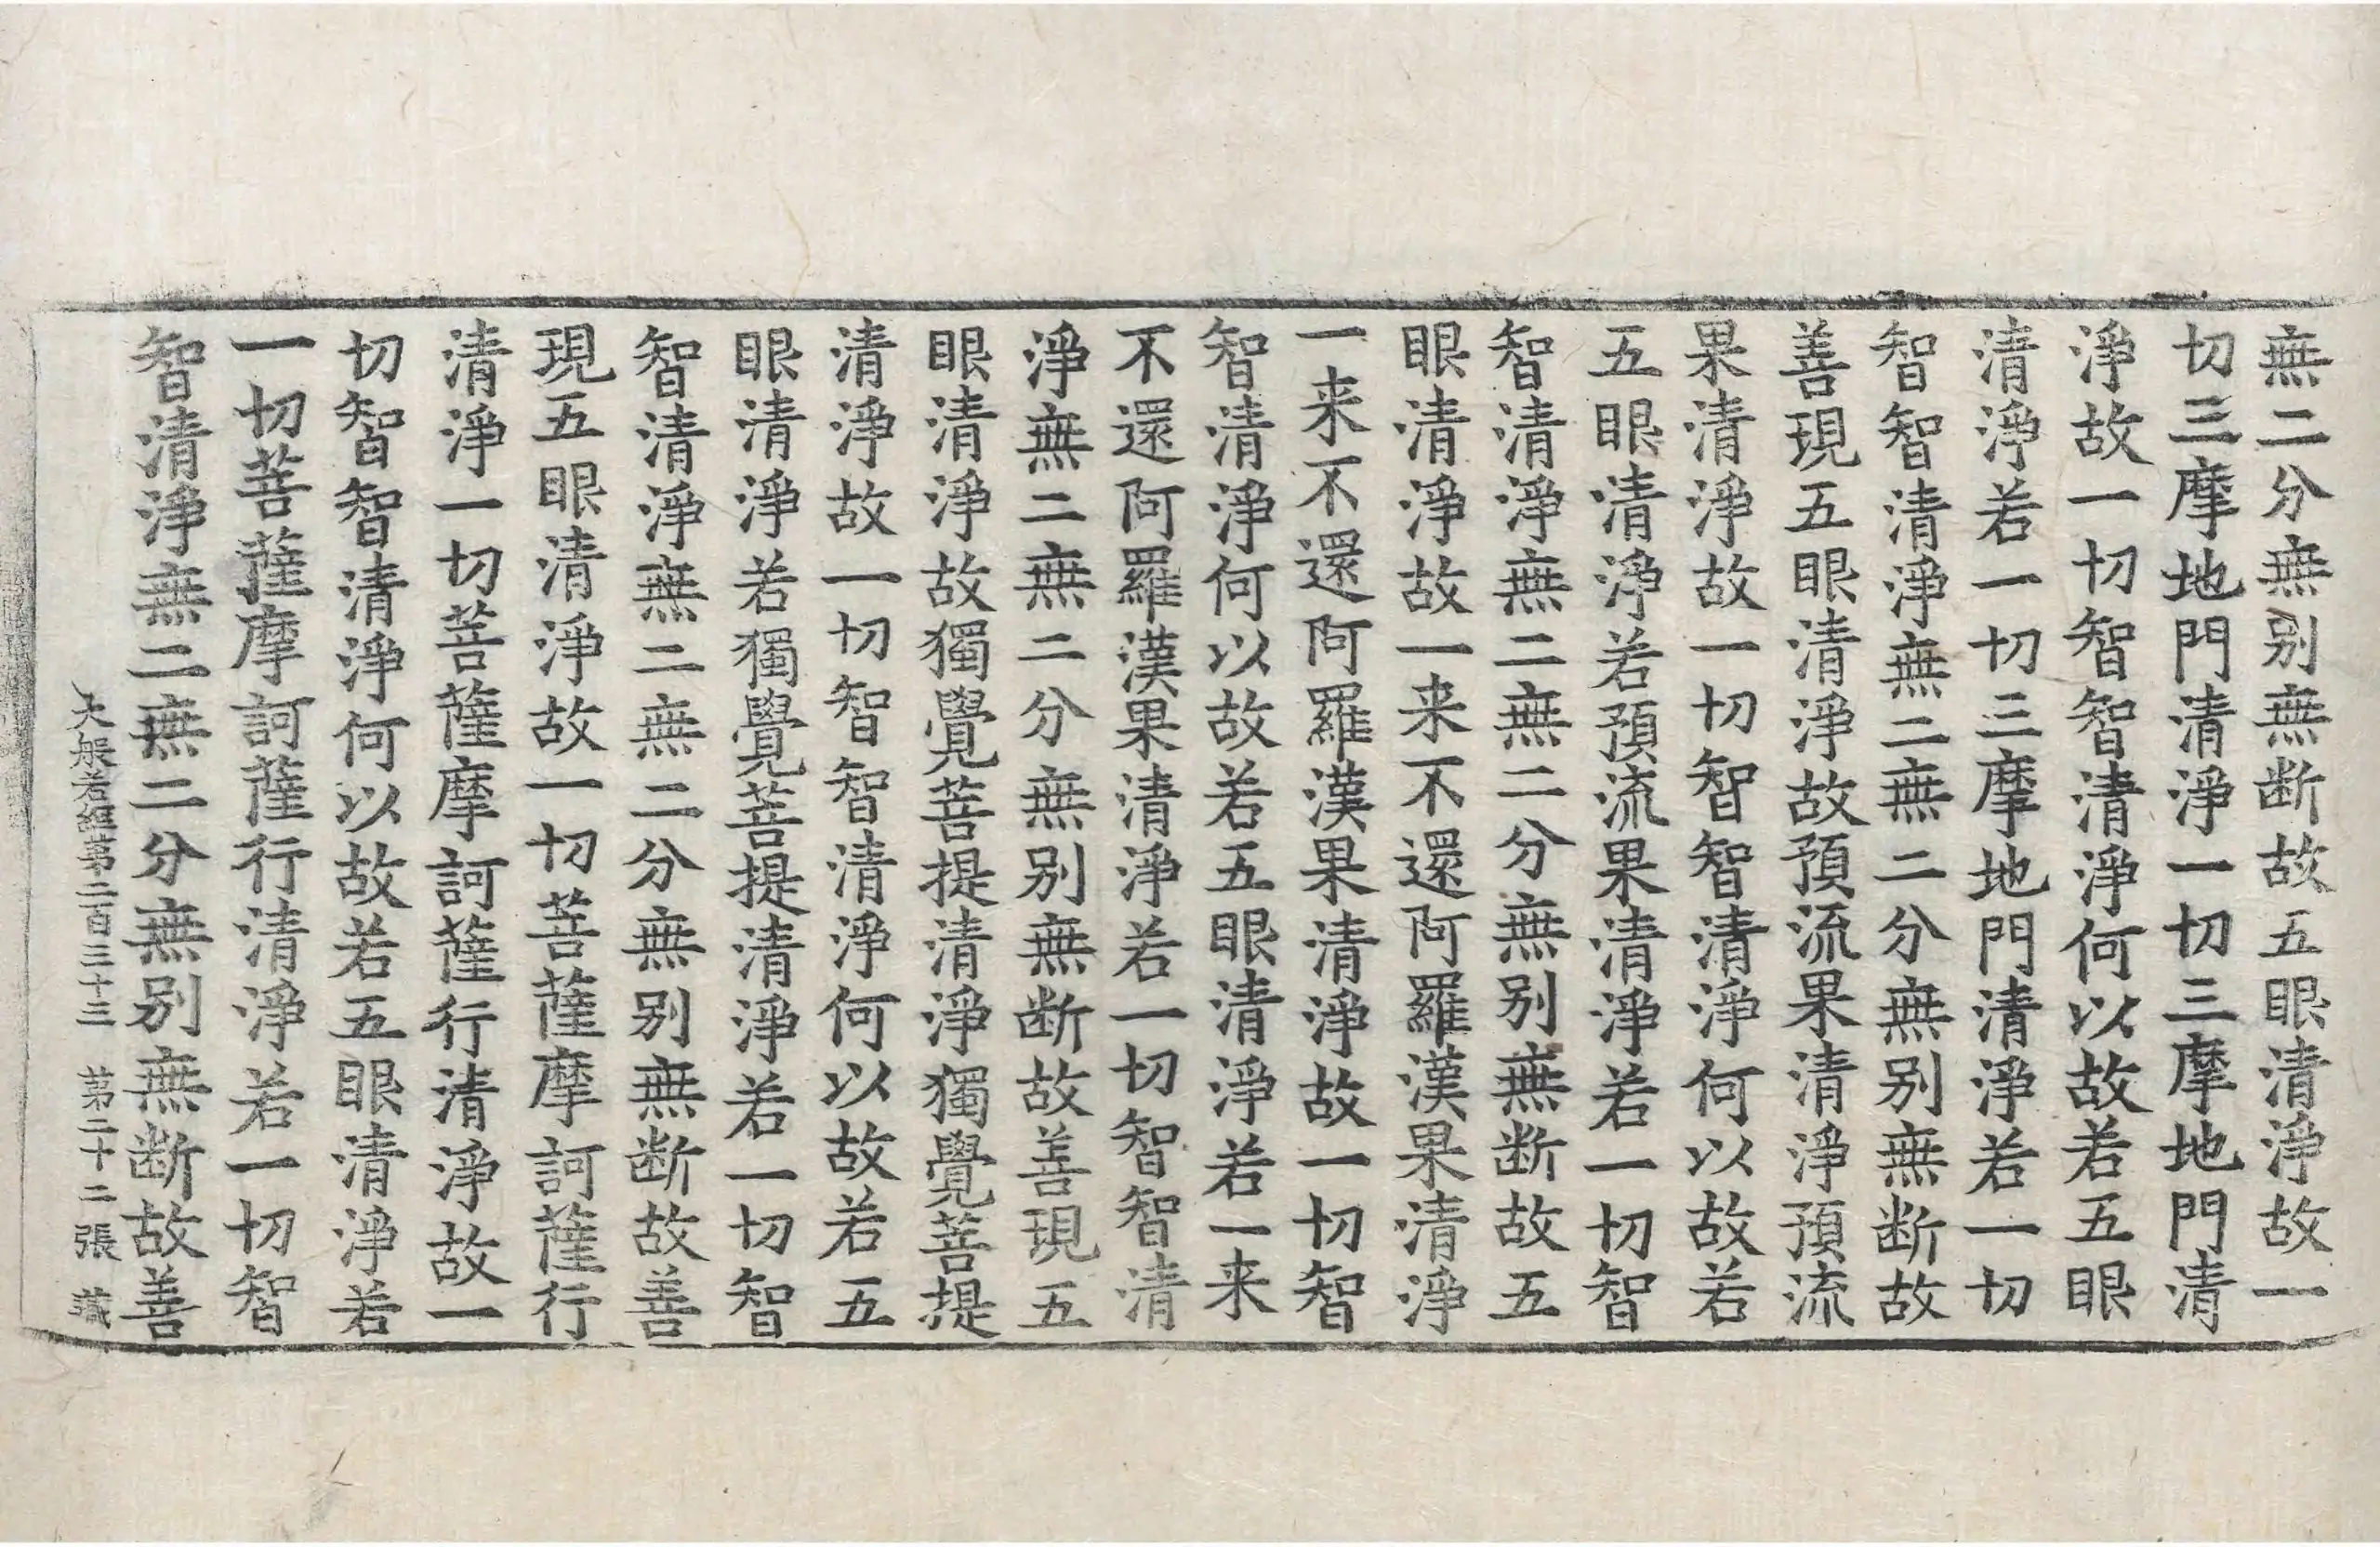 無二分無别無断故五眼清淨故一
切三摩地門清淨一切三摩地門清
淨故一切智智清淨何以故若五眼
清淨若一切三摩地門清淨若一切
智智清淨無二無二分無别無断故
善現五眼清淨故預流果清淨預流
果清淨故一切智智清淨何以故若
五眼清淨若預流果清淨若一切智
智清淨無二無二分無别無断故五
眼清淨故一来不還阿羅漢果清淨
一来不還阿羅漢果清淨故一切智
智清淨何以故若五眼清淨若一来
不還阿羅漢果清淨若一切智智清
淨無二無二分無别無断故善現五
眼清淨故獨覺菩提清淨獨覺菩提
清淨故一切智智清淨何以故若五
眼清淨若獨覺菩提清淨若一切智
智清淨無二無二分無别無断故善
現五眼清淨故一切菩薩摩訶薩行
清淨一切菩薩摩訶薩行清淨故一
切智智清淨何以故若五眼清淨若
一切菩薩摩訶薩行清淨若一切智
智清淨無二無二分無别無断故善
大般若經第二百三十三 第二十二張 藏